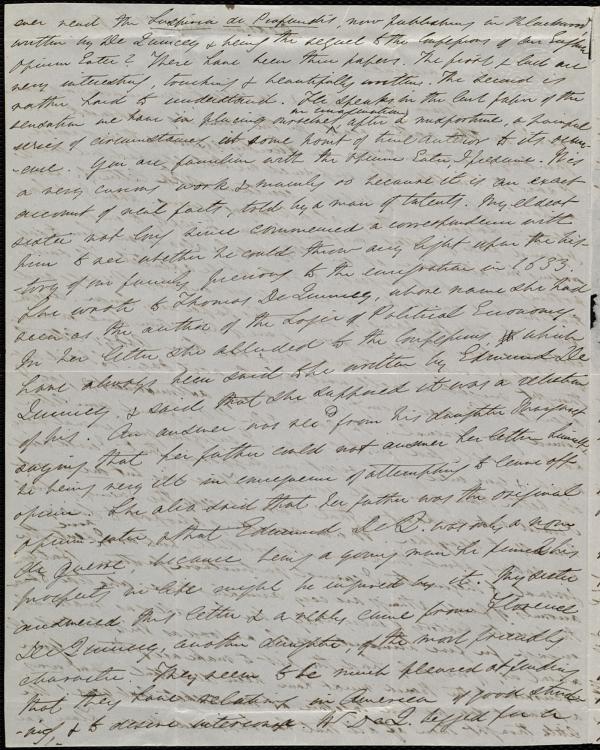 ever read the Suspiria de Profundis, now publishing in Blackwood
written by De Quincey & being the sequel to the Confessions of an English
Opium Eater? There have been three papers. The first & last are
very interesting, touching & beautifully written. The second is
rather hard to understand. He speaks in the last paper of the
sensation we have in placing ourselves in imagination after a misfortune, a painful
series of circumstances, at some point of time anterior to its occur-
-ence. You are familiar with the Opium Eater I presume. It is
a very curious work & mainly so because it is an exact
account of real facts, told by a man of talents. My eldest
sister not long since commenced a correspondence with
him to see whether he could throw any light upon the his-
tory of our family previous to the emigration in 1633.
She wrote to Thomas De Quincey, whose name she had
seen as the author of the Logic of Political Economy.
In her letter she alluded to the Confessions, which
have always been said to be written by Edmund De
Quincey, & said that she supposed it was a relation
of his. An answer was rec'd from his daughter Margaret
saying that her father could not answer her letter himself
he being very ill in consequence of attempting to leave off
opium. She also said that her father was the original
opium-eater, & that Edmund De Q. was only a nom
de guerre because being a young man he feared his
prospects in life might be injured by it. My sister
answered this letter & a reply came from Florence
De Quincey, another daughter, of the most friendly
character. They seem to be much pleased at finding
that they have relations in America of good stand-
-ing, & to desire intercourse begged for a